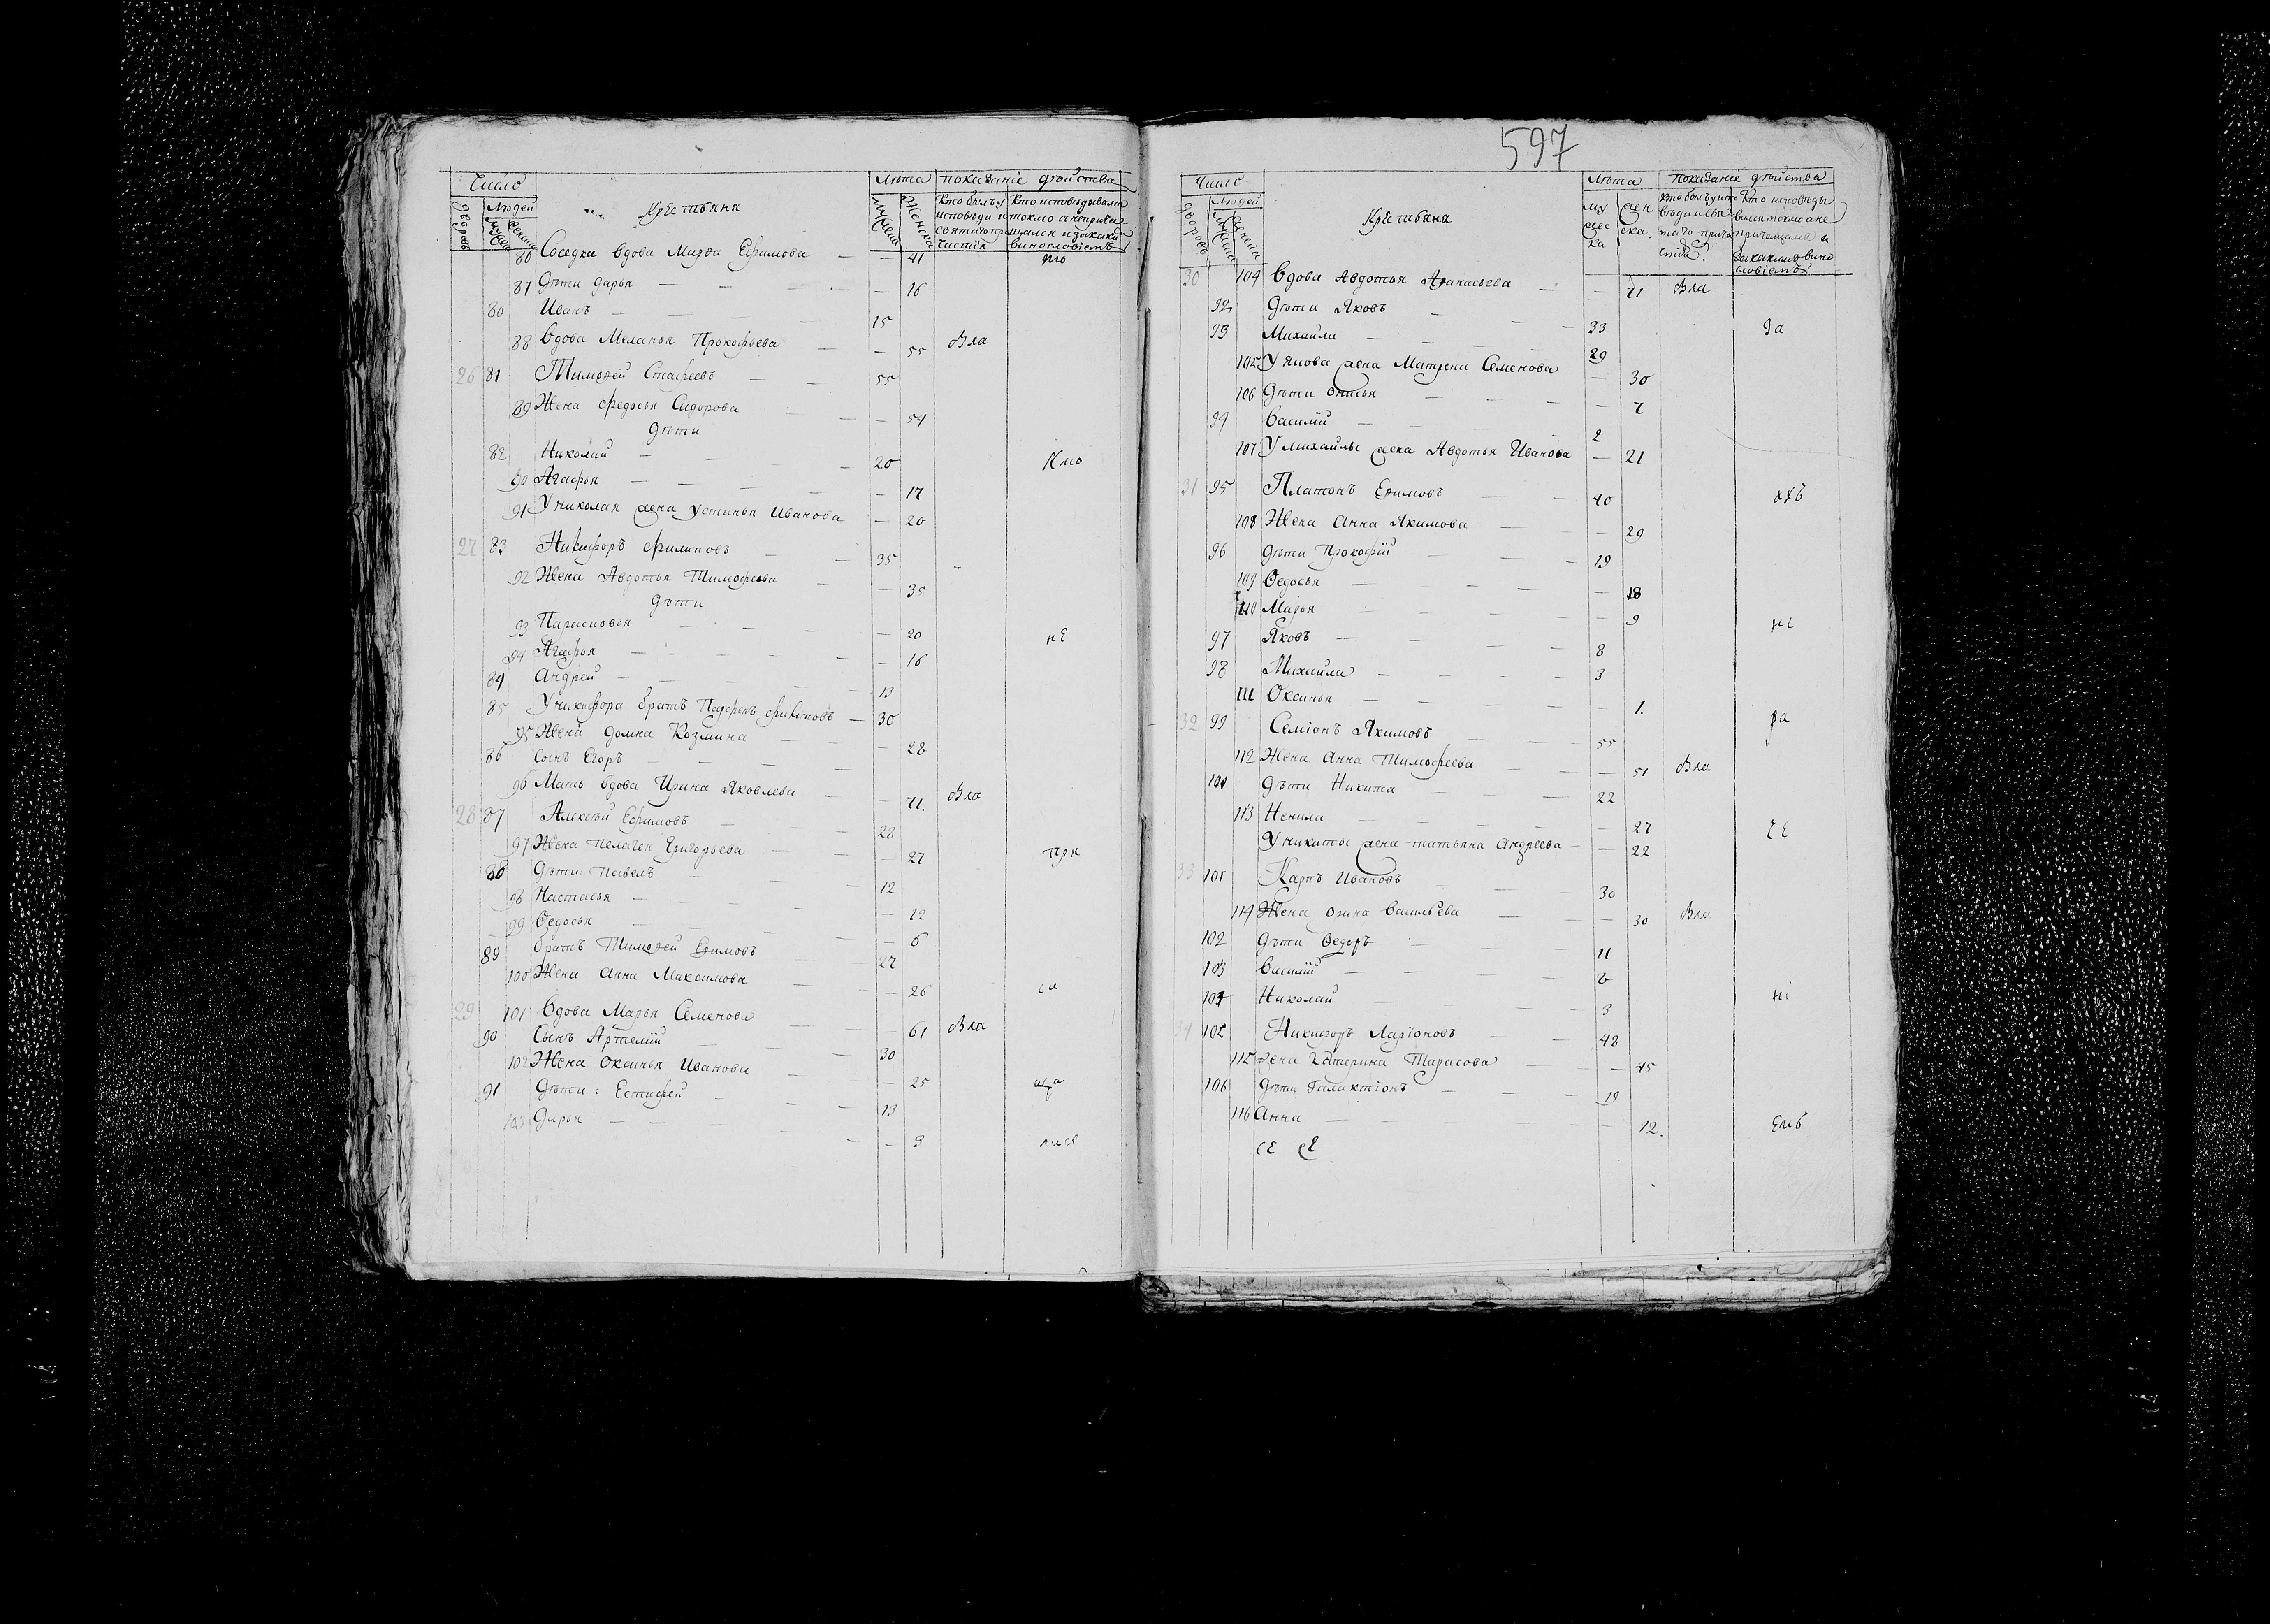 Число
Лѣта показаніе дѣйства
дворовъ
Людей
мужеска
женска
Крестьяня
мужеска
женска
кто былъ у исповѣди и святаго причастія
кто исповѣдывался токмо а непричащался и за какимъ винословіемъ
86 Соседка вдова Марѳа Ефимова — — 41
87 Дѣти Дарья — — — 16
80 Иванъ — — 15
88 вдова Меланья Прокофьева — — 55 Вла
26 81 Тимоѳей Стафеевъ — — 55
89 Жена Федосья Сидорова — — 54
дѣти
82 Николай — — — 20
90 Агафья — — — 17
91 У Николая жена Устинья Иванова — 20
27 83 Никифоръ Филиповъ — 35
92 Жена Авдотья Тимофеева — — 35
дѣти
93 Парасковья — — — 20 не
94 Агафья — — — 16
84 Андрей — — — 13
85 У Никифора братъ Парфенъ Филиповъ — 30
95 Жена Домна Козмина — — 28
86 Сынъ Егоръ — — —
96 Мать вдова Ирина Яковлева — — 71. Вла
28 87 Алексѣй Ефимовъ — — 28
97 Жена Пелагея Григорьева — — 27 при
88 Дѣти: Павелъ — — 12
98 Настасья — — — 12
99 Ѳедосья — — — 6
89 братъ Тимоѳей Ефимовъ — 27
100 Жена Анна Максимова — — 26
29 101 вдова Марья Семенова — — 61 Вла
90 Сынъ Артемій — — 30
102 Жена Оксинья Иванова — — 25
91 Дѣти: Естифей — — — 13
103 Дарья — — — — 3
597
Число
Лѣта показаніе дѣйства
дворовъ
Людей
Крестьяня
мужеска
женска.
30 104 вдова Авдотья Аѳанасьева — — 71 Вла
92 Дѣти Яковъ — — — 33
93 Михайла — — — 29
105 У Якова жена Матрена Семенова — 30
106 Дѣти — — — — 7
94 Василій — — — 2
107 У Михайлы жена Авдотья Иванова — 21
31 95 Платонъ Ефимовъ — — 40
108 Жена Анна Якимова — — 29
96 дѣти Прокофій — — 19
109 Ѳедосья — — — 18
110 Марья — — — 9
97 Яковъ — — — 8
98 Михайла — — — 3
111 Оксинья — — — 1.
32 99 Семіонъ Якимовъ — — 55
112 Жена Анна Тимофеева — — 51 Вла
100 Дѣти Никита — — 22
113 Ненила — — — 27
У Никиты жена татьяна Андреева — — 22
33 101 Карпъ Ивановъ — — 30
114 Жена Васильева — — 30 Вла
102 Дѣти Ѳедоръ — — 11
103 Василій — — —
104 Николай — — — 3
34 105 Никифоръ Ларіоновъ — — 48
115 жена Катерина Тарасова — — 45
106 Дѣти Галактіонъ — — 19
116 Анна — — — 12.